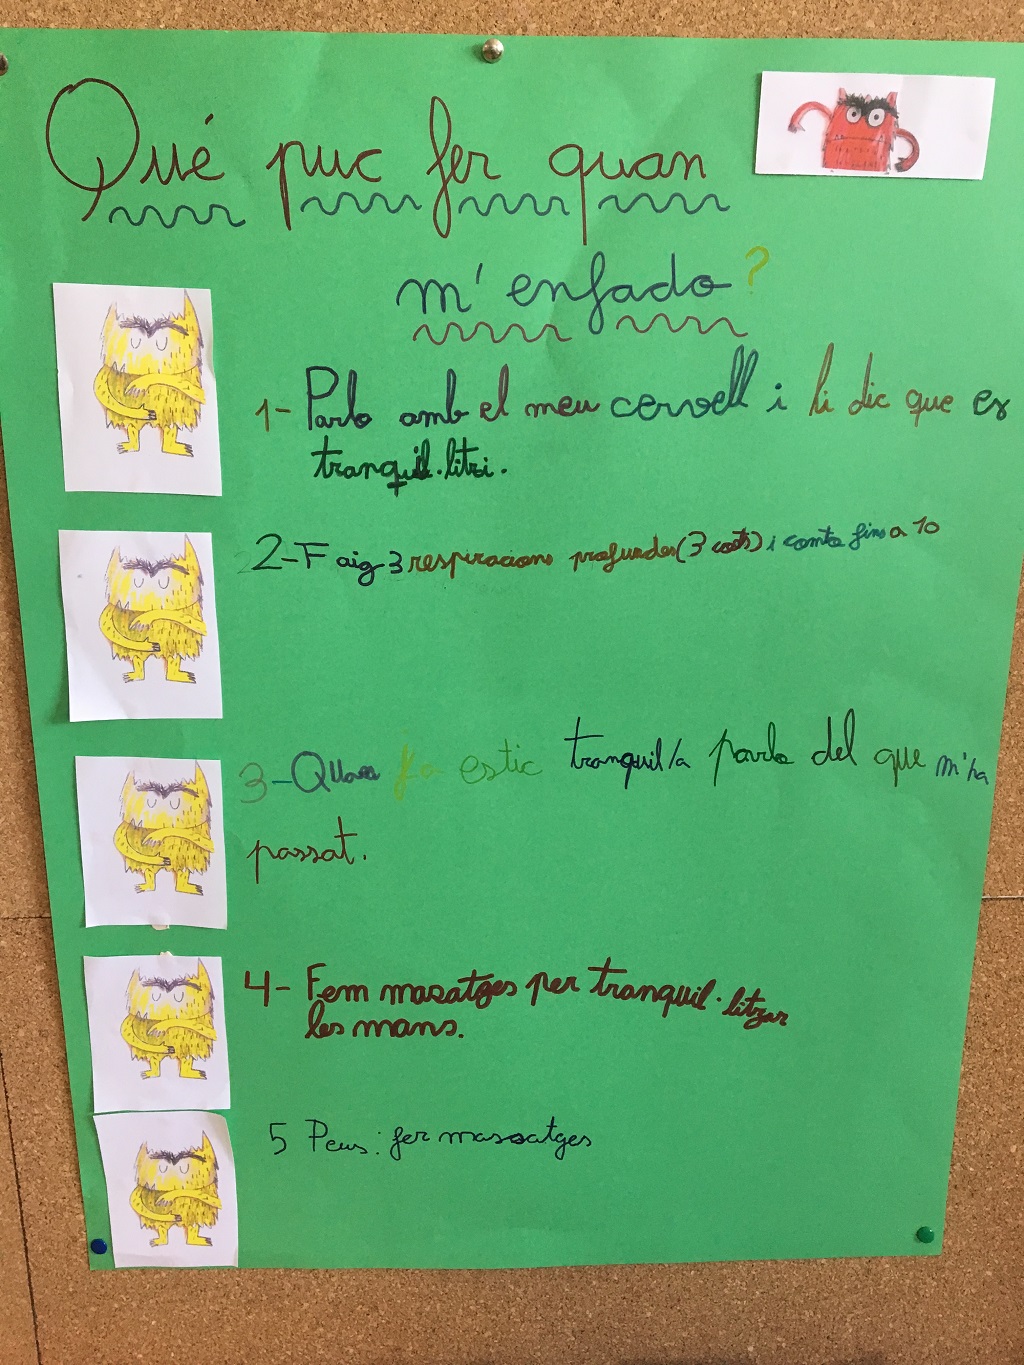 Qué puc fer quan
m'enfado?
1- Parlo amb el meu cervell i li dic que es
tranquil.litzi.
2-Faig 3 respiracions profundes (3 cops) i compto fins a 10
3-Quan ja estic tranquil/a parlo del que m'ha
passat.
4- Fem masatges per tranquil.litzar
les mans.
5 Peus: fer massatges